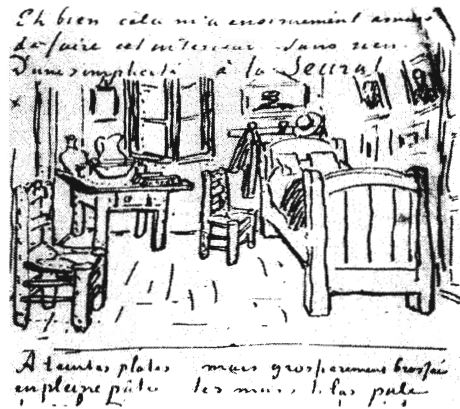 Eh bien cela m'a enormement amusé
de faire cet interieur sans rien
D'une simplicité à la Seurat
A teintes plates mais grossierement brossée
en pleine pâte les murs lilas pale